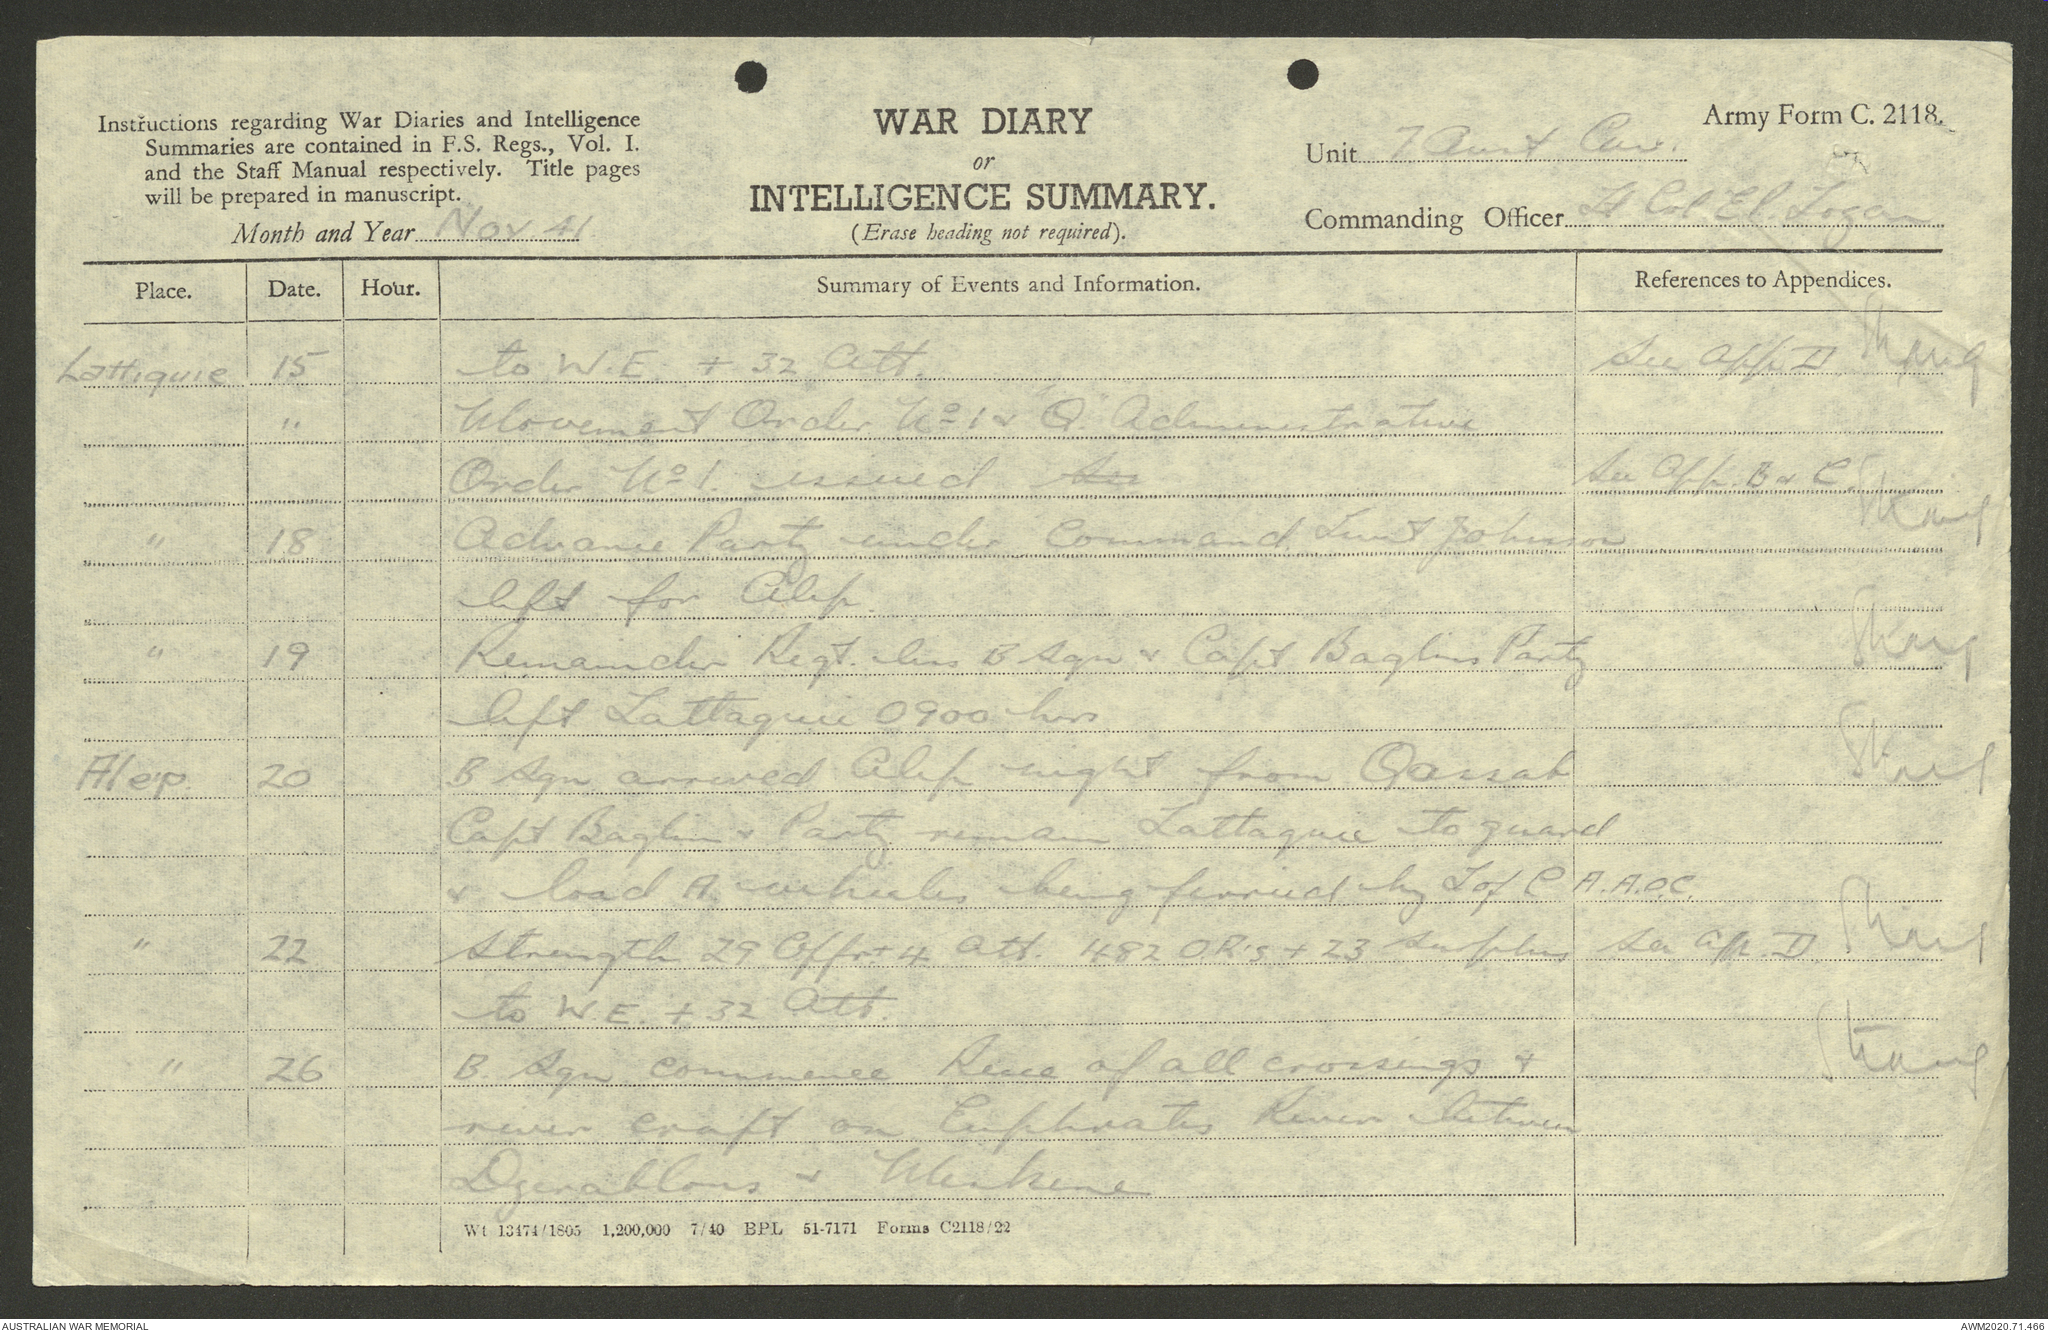 Instructions regarding War Diaries and Intelligence
Summaries are contained in F.S. Regs., Vol. I.
and the Staff Manual respectively. Title pages
will be prepared in manuscript.
Month and Year Nov 41
WAR DIARY
or
INTELLIGENCE SUMMARY.
(Erase heading not required).
Army Form C. 2118.
Unit 7 Aust Cav.
Commanding Officer Lt Col E. Logan
Place. Date. Hour. Summary of Events and Information. References to Appendices.
Lattiquie 15 to W.E. + 32 Att. See App D
" Movement Order No 1 & "Q" Administrative
Order No 1. issued See See App. B & C.
" 18 Advance Party under command Lieut Johnson
left for Alep.
" 19 Remainder Regt. less B Sqn & Capt Baglins Party
left Lattaquie 0900 hrs
Alep. 20 B Sqn arrived Alep night from Qassab
Capt Baglin & Party remain Lattaquie to guard
& load A. vehicles being ferried by L of C A.A.O.C.
" 22 Strength 29 Offrs + 4 Att. 482 O.R's + 23 surplus See App. D
to W.E. + 32 Att.
" 26 B. Sqn commence Recce of all crossings &
river craft on Euphrates River between
Djerablous & Meskene
Wt 13474/1805 1,200,000 7/40 BPL 51-7171 Forms C2118/22
AUSTRALIAN WAR MEMORIAL
AWM2020.71.466